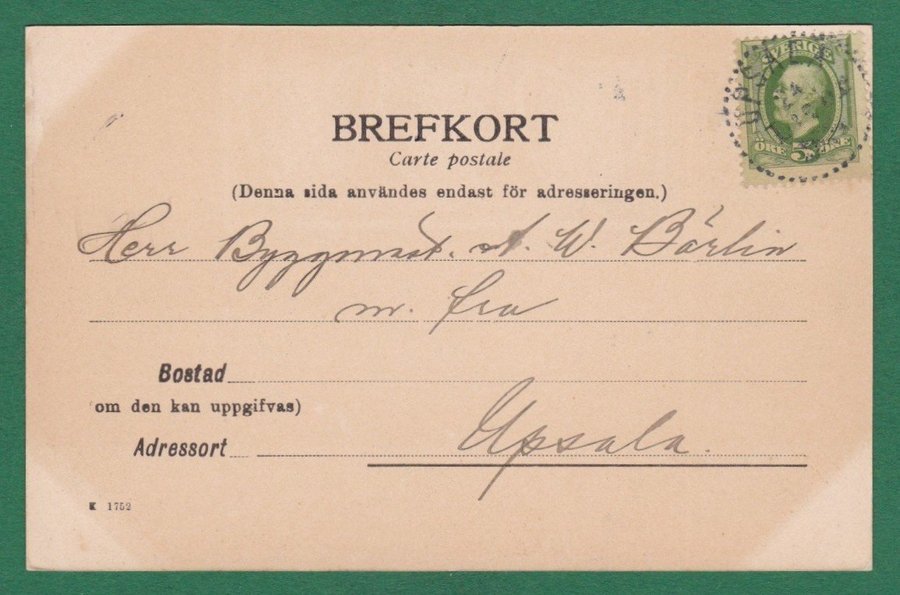 SVERIGE
UPSALA
5 ÖRE
BREFKORT
Carte postale
(Denna sida användes endast för adresseringen.)
Herr Byggmast. A. W. Börlin
m. fru
Bostad
om den kan uppgifvas)
Adressort Upsala.
K 1752